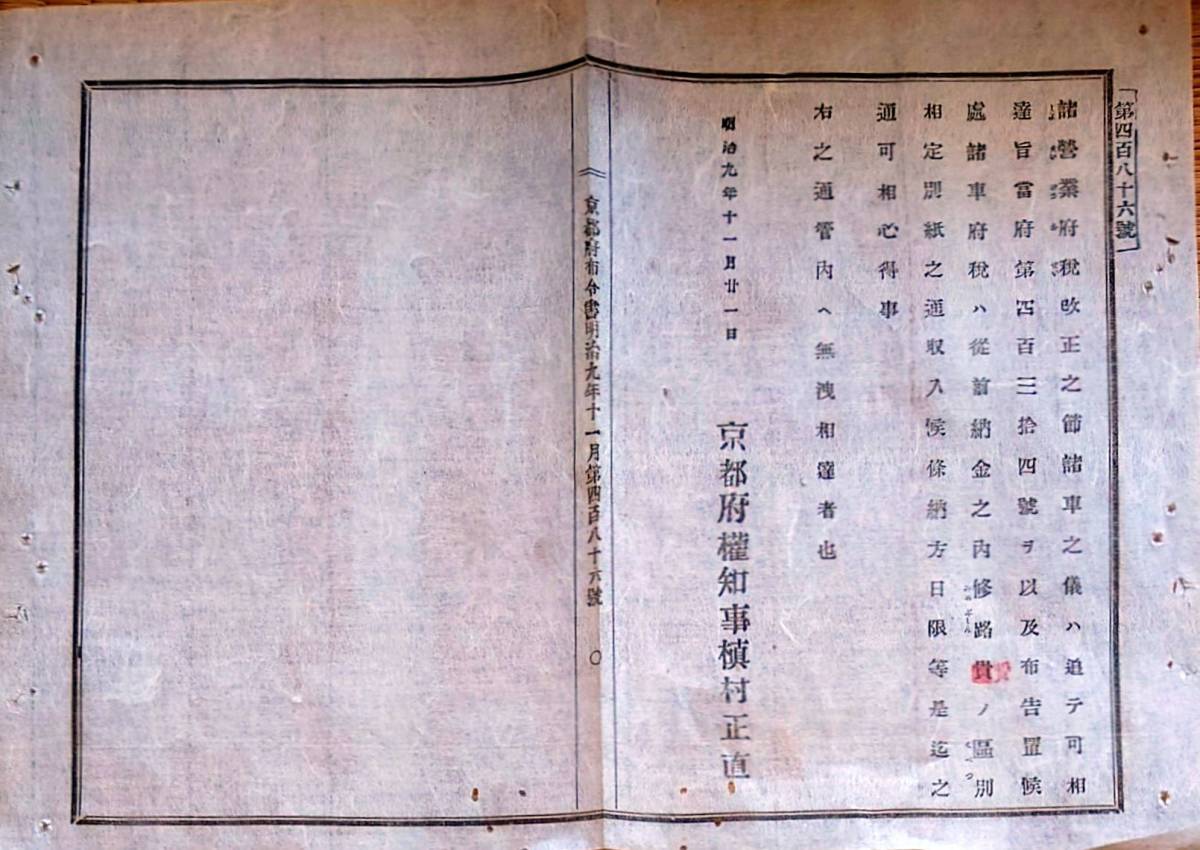 第四百八十六號
諸營業府稅改正之節諸車之儀ハ追テ可相
達旨當府第四百三拾四號ヲ以及布告置候
處諸車府稅ハ從前納金之內修路貴ノ區別
相定別紙之通取入候條納方日限等是迄之
通可相心得事
右之通管內ヘ無洩相達者也
明治九年十一月廿一日
京都府權知事槙村正直
京都府布令書明治九年十一月第四百八十六號 〇